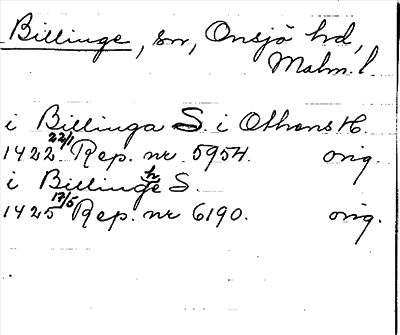 Billinge, sn, Onsjö hd,
Malm. l.
i Billinga S. i Othens H.
1422 22/1 Rep. nr. 5954. orig.
i Billinghe S.
1425 17/5 Rep. nr 6190. orig.